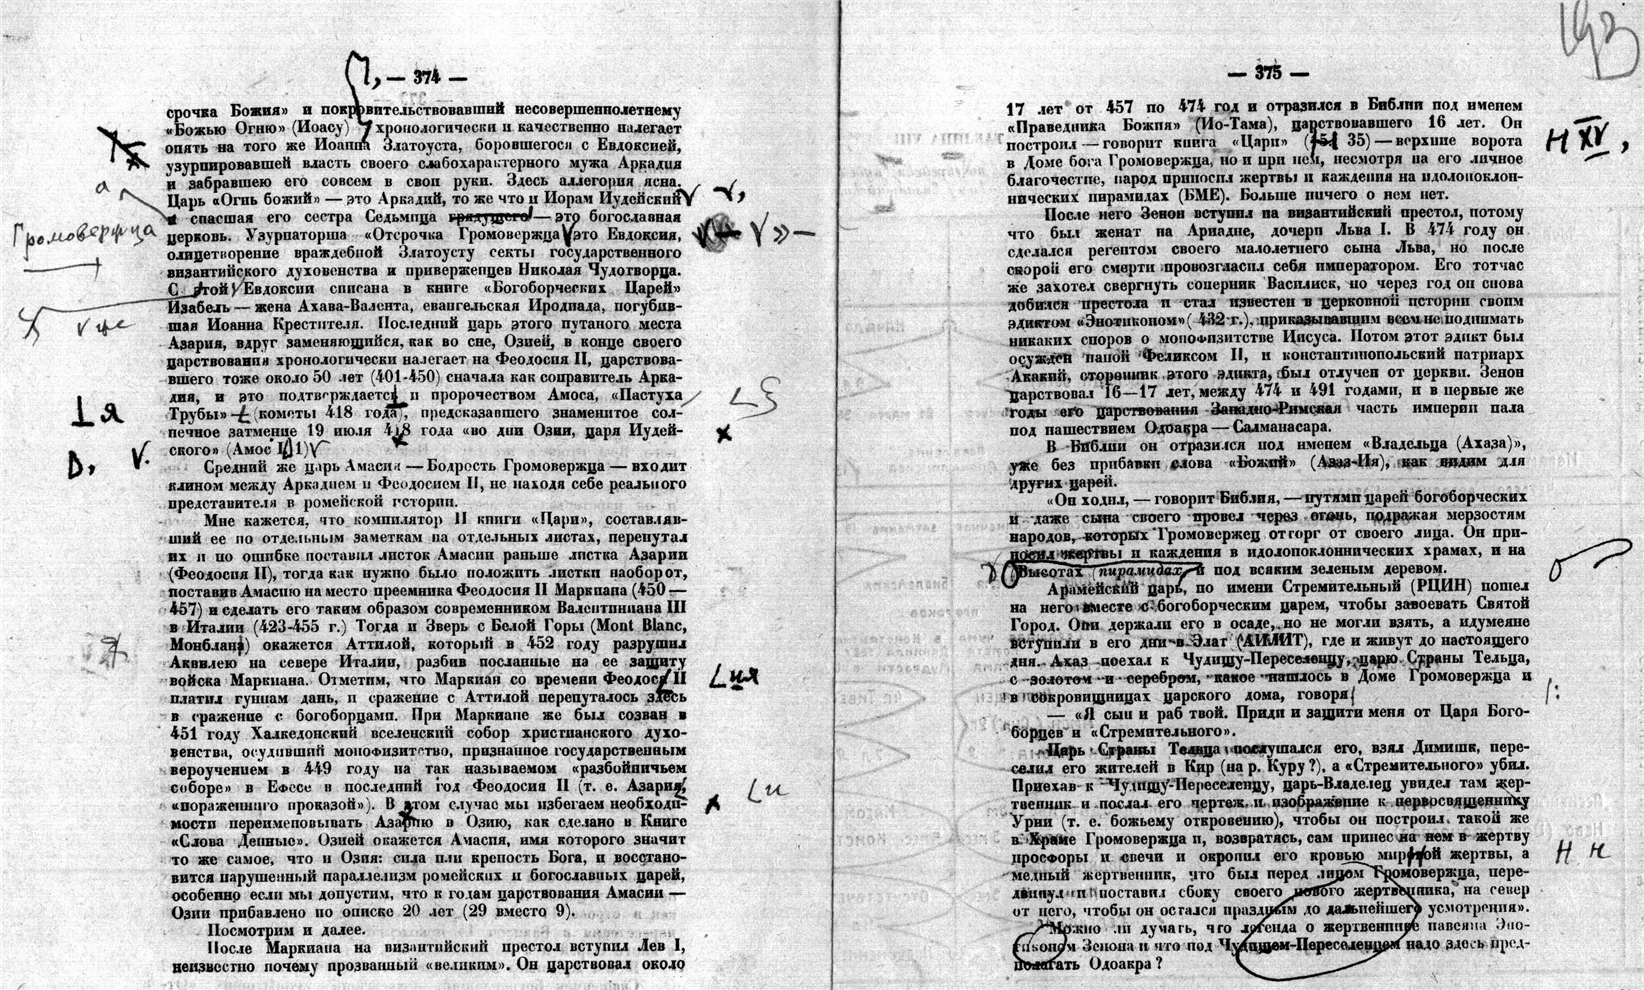 — 374 —
срочка Божия» и покровительствовавший несовершеннолетнему
«Божью Огню» (Иоасу) хронологически и качественно налегает
опять на того же Иоанна Златоуста, боровшегося с Евдоксией,
узурпировавшей власть своего слабохарактерного мужа Аркадия
и забравшею его совсем в свои руки. Здесь аллегория ясна.
Царь «Огнь божий» — это Аркадий, то же что и Иорам Иудейский
и спасшая его сестра Седьмица грядущего — это богославная
церковь. Узурпаторша «Отсрочка Громовержца это Евдоксия,
олицетворение враждебной Златоусту секты государственного
византийского духовенства и приверженцев Николая Чудотворца.
С этой Евдоксии списана в книге «Богоборческих Царей»
Изабель — жена Ахава-Валента, евангельская Иродиада, погубив-
шая Иоанна Крестителя. Последний царь этого путаного места
Азария, вдруг заменяющийся, как во сне, Озией, в конце своего
царствования хронологически налегает на Феодосия II, царствова-
вшего тоже около 50 лет (401-450) сначала как соправитель Арка-
дия, и это подтверждается и пророчеством Амоса, «Пастуха
Трубы» (кометы 418 года), предсказавшего знаменитое сол-
нечное затмение 19 июля 418 года «во дни Озии, царя Иудей-
ского» (Амос I, 1)
Средний же царь Амасия — Бодрость Громовержца — входит
клином между Аркадием и Феодосием II, не находя себе реального
представителя в ромейской истории.
Мне кажется, что компилятор II книги «Цари», составляв-
ший ее по отдельным заметкам на отдельных листах, перепутал
их и по ошибке поставил листок Амасии раньше листка Азарии
(Феодосия II), тогда как нужно было положить листки наоборот,
поставив Амасию на место преемника Феодосия II Маркиана (450 —
457) и сделать его таким образом современником Валентиниана III
в Италии (423-455 г.) Тогда и Зверь с Белой Горы (Mont Blanc,
Монблана) окажется Аттилой, который в 452 году разрушил
Аквилею на севере Италии, разбив посланные на ее защиту
войска Маркиана. Отметим, что Маркиан со времени Феодос II
платил гуннам дань, и сражение с Аттилой перепуталось здесь
в сражение с богоборцами. При Маркиане же был созван в
451 году Халкедонский вселенский собор христианского духо-
венства, осудивший монофизитство, признанное государственным
вероучением в 449 году на так называемом «разбойничьем
соборе» в Ефесе в последний год Феодосия II (т. е. Азария,
«пораженниго проказой»). В этом случае мы избегаем необходи-
мости переименовывать Азарию в Озию, как сделано в Книге
«Слова Денные». Озией окажется Амасия, имя которого значит
то же самое, что и Озия: сила или крепость Бога, и восстано-
вится нарушенный параллелизм ромейских и богославных царей,
особенно если мы допустим, что к годам царствования Амасии —
Озии прибавлено по описке 20 лет (29 вместо 9).
Посмотрим и далее.
После Маркиана на византийский престол вступил Лев I,
неизвестно почему прозванный «великим». Он царствовал около
а
Громовержца
⊥я
Lия
Lи
— 375 —
17 лет от 457 по 474 год и отразился в Библии под именем
«Праведника Божия» (Ио-Тама), царствовавшего 16 лет. Он
построил — говорит книга «Цари» ( 35) — верхние ворота
в Доме бога Громовержца, но и при нем, несмотря на его личное
благочестие, народ приносил жертвы и каждения на идолопоклон-
нических пирамидах (БМЕ). Больше ничего о нем нет.
После него Зенон вступил на византийский престол, потому
что был женат на Ариадне, дочери Льва I. В 474 году он
сделался регентом своего малолетнего сына Льва, но после
скорой его смерти провозгласил себя императором. Его тотчас
же захотел свергнуть соперник Василиск, но через год он снова
добился престола и стал известен в церковной истории своим
эдиктом «Энотиконом» ( 432 г.), приказывавшим всем не поднимать
никаких споров о монофизитстве Иисуса. Потом этот эдикт был
осужден папой Феликсом II, и константинопольский патриарх
Акакий, сторонник этого эдикта, был отлучен от церкви. Зенон
царствовал 16—17 лет, между 474 и 491 годами, и в первые же
годы его царствования Западно-Римская часть империи пала
под нашествием Одоакра — Салманасара.
В Библии он отразился под именем «Владельца (Ахаза)»,
уже без прибавки слова «Божий» (Азаз-Ия), как видим для
других царей.
«Он ходил, — говорит Библия, — путями царей богоборческих
и даже сына своего провел через огонь, подражая мерзостям
народов, которых Громовержец отторг от своего лица. Он при-
носил жертвы и каждения в идолопоклоннических храмах, и на
Высотах (пирамидах, и под всяким зеленым деревом.
Арамейский царь, по имени Стремительный (РЦИН) пошел
на него вместе с богоборческим царем, чтобы завоевать Святой
Город. Они держали его в осаде, но не могли взять, а идумеяне
вступили в его дни в Элат (АИЛИТ), где и живут до настоящего
дня. Ахаз поехал к Чудищу-Переселенцу, царю Страны Тельца,
с золотом и серебром, какое нашлось в Доме Громовержца и
в сокровищницах царского дома, говоря
— «Я сын и раб твой. Приди и защити меня от Царя Бого-
борцев и «Стремительного».
Царь Страны Тельца послушался его, взял Димишк, пере-
селил его жителей в Кир (на р. Куру?), а «Стремительного» убил.
Приехав к Чудищу-Переселенцу, царь-Владелец увидел там жер-
твенник и послал его чертеж и изображение к первосвященнику
Урии (т. е. божьему откровению), чтобы он построил такой же
в Храме Громовержца и, возвратясь, сам принес на нем в жертву
просфоры и свечи и окропил его кровью мирной жертвы, а
медный жертвенник, что был перед лицом Громовержца, пере-
двинул и поставил сбоку своего нового жертвенника, на север
от него, чтобы он остался праздным до дальнейшего усмотрения».
Можно ли думать, что легенда о жертвеннике навеяна Эно-
тиконом Зенона и что под Чудищем-Переселенцем надо здесь пред-
полагать Одоакра?
193
Н XV,
Н н